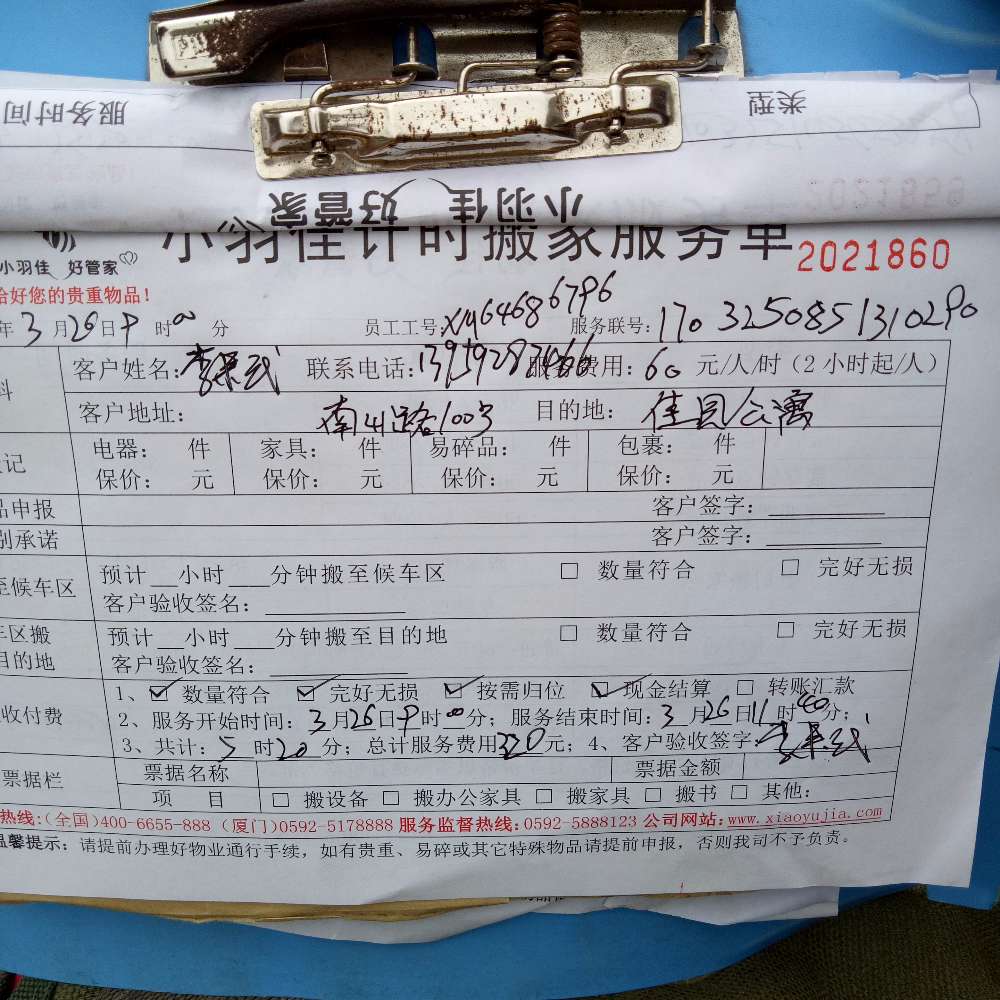 服务时间 类型
小羽佳 好管家
2021859
小羽佳计时搬家服务单 2021860
小羽佳 好管家
给好您的贵重物品!
年3月26日9时00分 员工工号:xy64686796 服务联号:1703250851310290
客户姓名: 联系电话: 服务费用:60元/人/时(2小时起/人)
客户地址: 南山路100号 目的地: 佳园公寓
电器: 件 家具: 件 易碎品: 件 包裹: 件
保价: 元 保价: 元 保价: 元 保价: 元
品申报 客户签字:
别承诺 客户签字:
至候车区 预计 小时 分钟搬至候车区 □ 数量符合 □ 完好无损
客户验收签名:
车区搬 预计 小时 分钟搬至目的地 □ 数量符合 □ 完好无损
目的地 客户验收签名:
收付费 1、☑ 数量符合 ☑ 完好无损 ☑ 按需归位 ☑ 现金结算 □ 转账汇款
2、服务开始时间:3月26日9时00分;服务结束时间:3月26日11时40分;
3、共计:5时20分;总计服务费用320元;4、客户验收签字:
票据栏 票据名称 票据金额
项目 □ 搬设备 □ 搬办公家具 □ 搬家具 □ 搬书 □ 其他:
热线:(全国)400-6655-888 (厦门)0592-5178888 服务监督热线:0592-5888123 公司网站:www.xiaoyujia.com
温馨提示:请提前办理好物业通行手续,如有贵重、易碎或其它特殊物品请提前申报,否则我司不予负责。